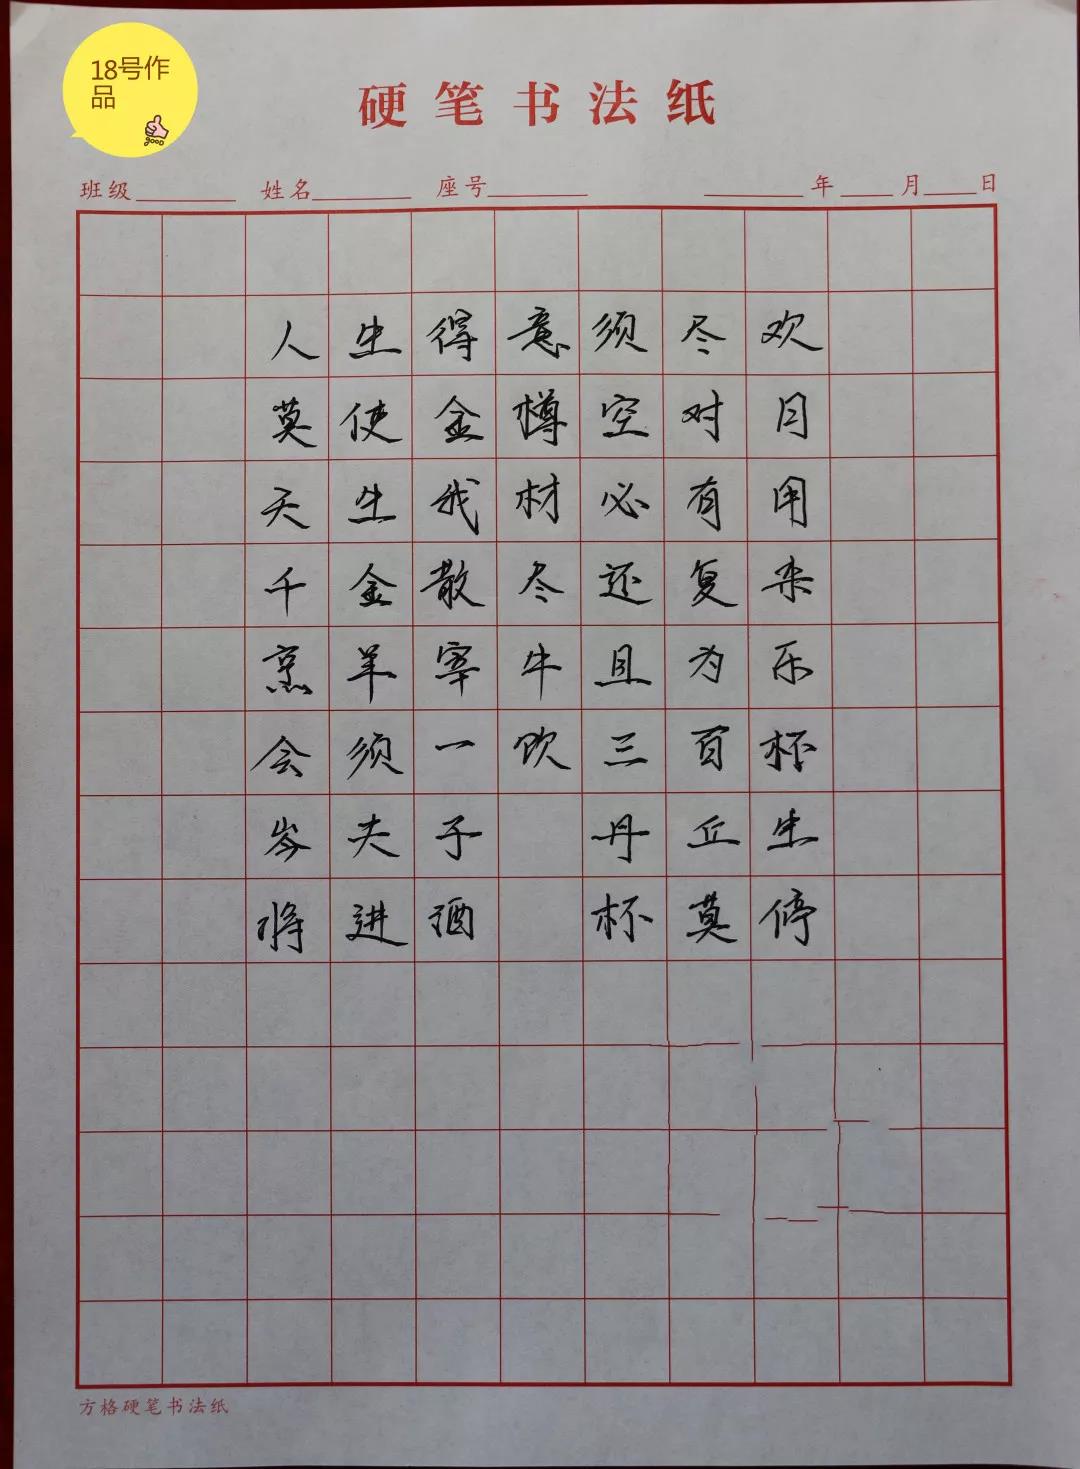 18号作
品
硬笔书法纸
班级 姓名 座号 年 月 日
人生得意须尽欢
莫使金樽空对月
天生我材必有用
千金散尽还复来
烹羊宰牛且为乐
会须一饮三百杯
岑夫子 丹丘生
将进酒 杯莫停
方格硬笔书法纸